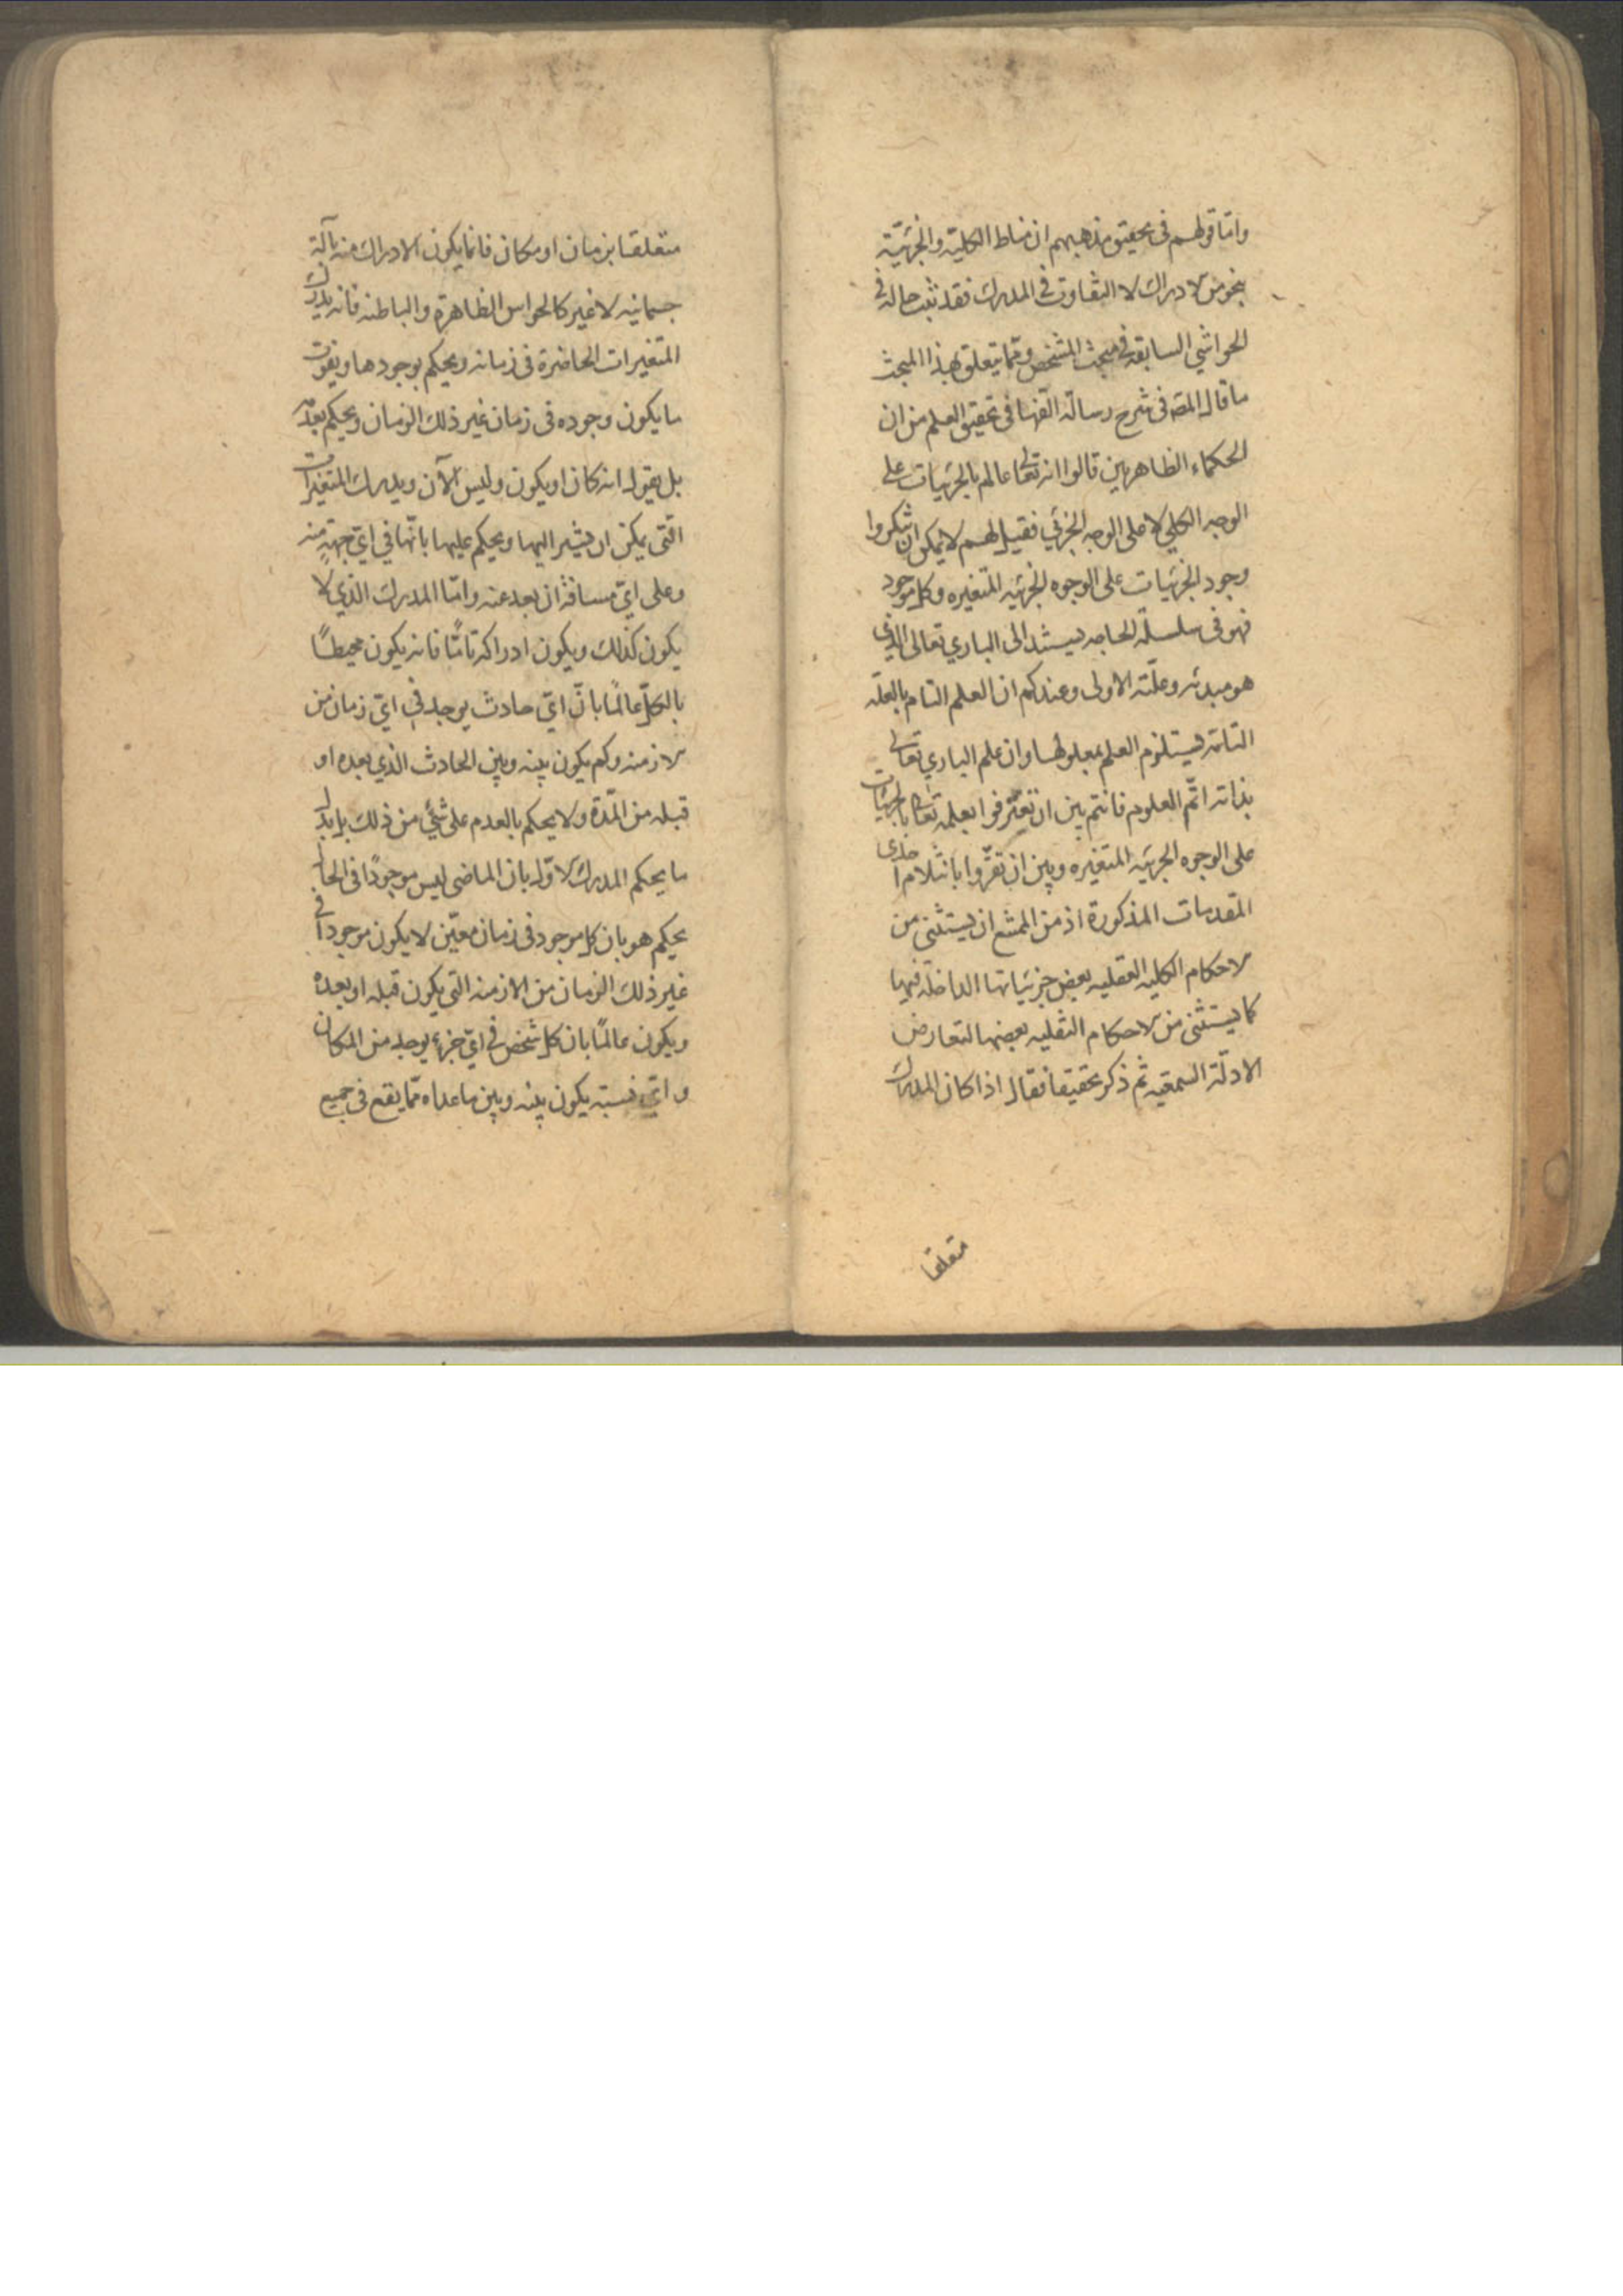 واما قولهم فى تحقيق مذهبهم ان مناط الكلية والجزئية
بنحو من الادراك لا التفاوت فى المدرك فقد ثبت حاله فى
الحواشي السابقة في مبحث التشخص ومما يتعلق بهذا المبحث
ما قال المصـ فى شرح رسالة الفها فى تحقيق العلم من ان
الحكماء الظاهريين قالوا انه تعالى عالم بالجزئيات على
الوجه الكلي لا على الوجه الجزئي فقيل لهم لا يمكن ان تنكروا
وجود الجزئيات على الوجوه الجزئيه المتغيره وكل موجود
فهو فى سلسلة الحاجه يستند الى الباري تعالى الذي
هو مبدئه وعلته الاولى وعندكم ان العلم التام بالعلة
التامة يستلزم العلم بمعلولها وان علم الباري تعالى
بذاته اتم العلوم فانتم بين ان تعترفوا بعلمه تعالى بالجزئيات
على الوجوه الجزئيه المتغيره وبين ان تقروا بانثلام احدى
المقدمات المذكورة اذ من الممتنع ان يستثنى من
الاحكام الكليه العقليه بعض جزئياتها الداخلة فيها
كما يستثنى من الاحكام النقليه بعضها لتعارض
الادلة السمعيه ثم ذكر تحقيقا فقال اذا كان المدرك
متعلقا
متعلقا بزمان او مكان فانما يكون الادراك منه بآلة
جسمانيه لا غير كالحواس الظاهرة والباطنه فانه يدرك
المتغيرات الحاضرة فى زمانه ويحكم بوجودها ويفوت
ما يكون وجوده فى زمان غير ذلك الزمان ويحكم بعدمه
بل يقول انه كان او يكون وليس الآن ويدرك المتغيرات
التى يمكن ان يشير اليها ويحكم عليها بانها في اي جهة منه
وعلى اي مسافة ان بعد عنه واما المدرك الذي لا
يكون كذلك ويكون ادراكه تاما فانه يكون محيطا
بالكل عالما بان اي حادث يوجد في اي زمان من
الازمنه وكم يكون بينه وبين الحادث الذي بعده او
قبله من المدة ولا يحكم بالعدم على شئ من ذلك بل بدل
ما يحكم المدرك الاول بان الماضى ليس موجودا فى الحال
يحكم هو بان كل موجود فى زمان معين لا يكون موجودا في
غير ذلك الزمان من الازمنه التي يكون قبله او بعده
ويكون عالما بان كل شخص في اي جزء يوجد من المكان
واي نسبة يكون بينه وبين ما عداه مما يقع فى جميع